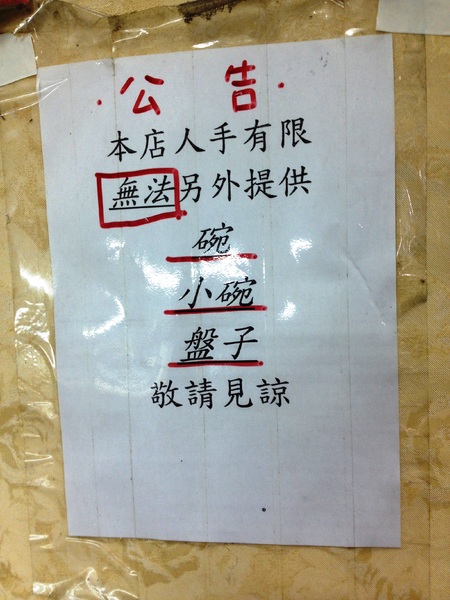 公告
本店人手有限
無法另外提供
碗
小碗
盤子
敬請見諒